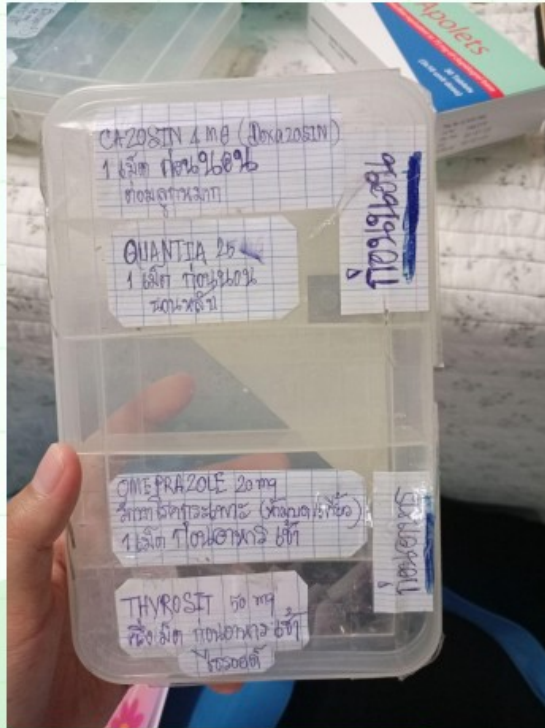 Apolets
CAZOSIN 4 mg (Doxazosin)
1 เม็ด ก่อนนอน
ต่อมลูกหมาก
ก่อนนอน
QUANTIA 25
1 เม็ด ก่อนนอน
นอนหลับ
OMEPRAZOLE 20 mg
(ห้ามบด/เคี้ยว)
1 เม็ด ก่อนอาหาร เช้า
THYROSIT 50 mg
ครึ่งเม็ด ก่อนอาหาร เช้า
ไธรอยด์